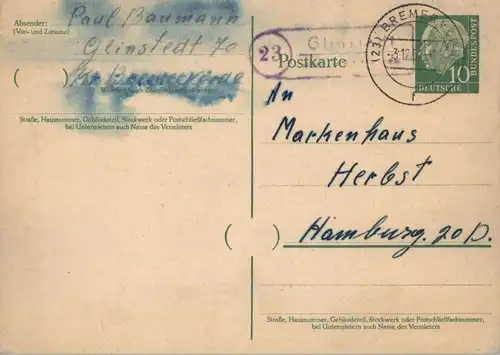 Absender:
(Vor- und Zuname)
Paul Baumann
Glinstedt 70
Kr. Bremervörde
Straße, Hausnummer, Gebäudeteil, Stockwerk oder Postschließfachnummer,
bei Untermietern auch Name des Vermieters
23
Postkarte
(23) BREMERV
10
DEUTSCHE
BUNDESPOST
An
Markenhaus
Herbst
Hamburg. 20 D.
Straße, Hausnummer, Gebäudeteil, Stockwerk oder Postschließfachnummer,
bei Untermietern auch Name des Vermieters